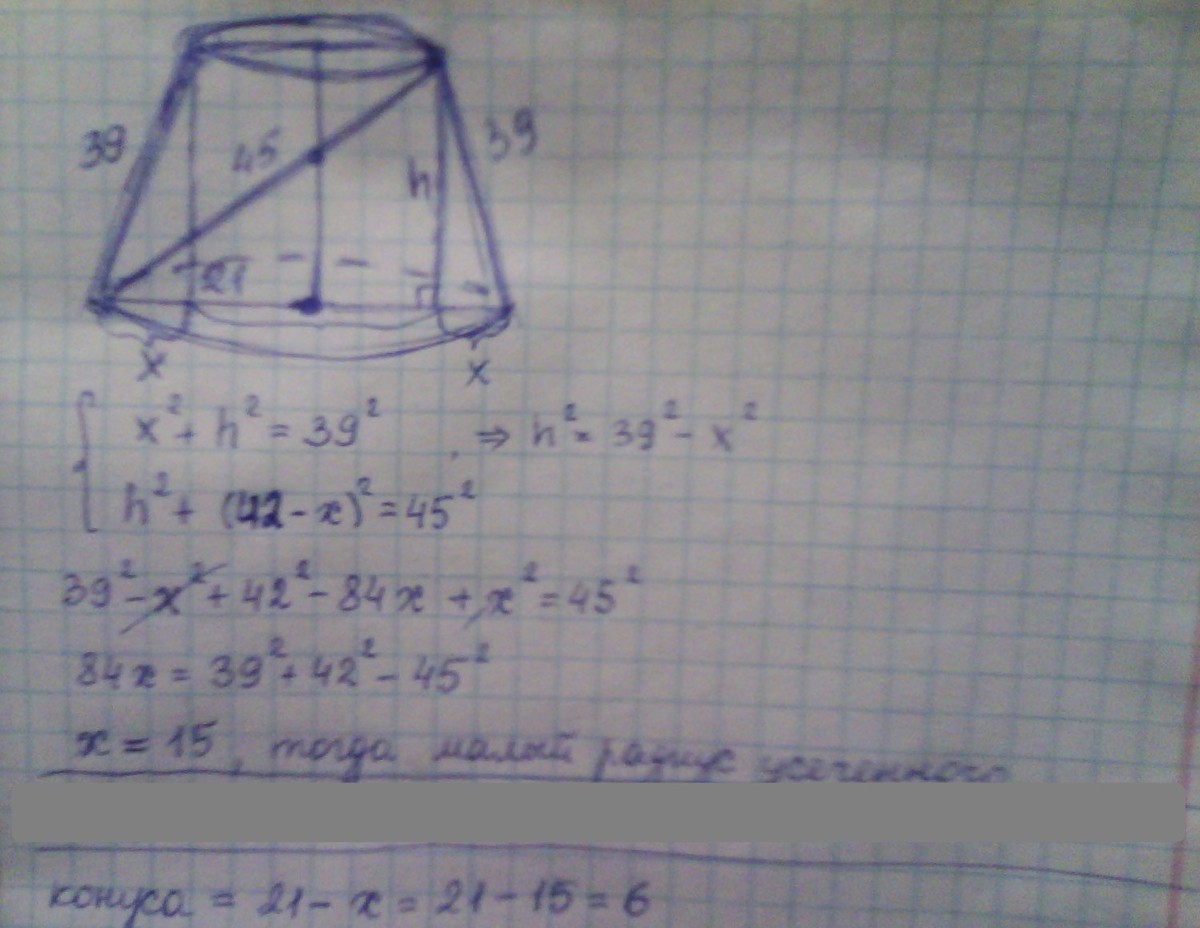 39 45 h 39
21
x x
x² + h² = 39² , ⇒ h² = 39² - x²
h² + (42 - x)² = 45²
39² - x² + 42² - 84x + x² = 45²
84x = 39² + 42² - 45²
x = 15, тогда малый радиус усеченного
конуса = 21 - x = 21 - 15 = 6